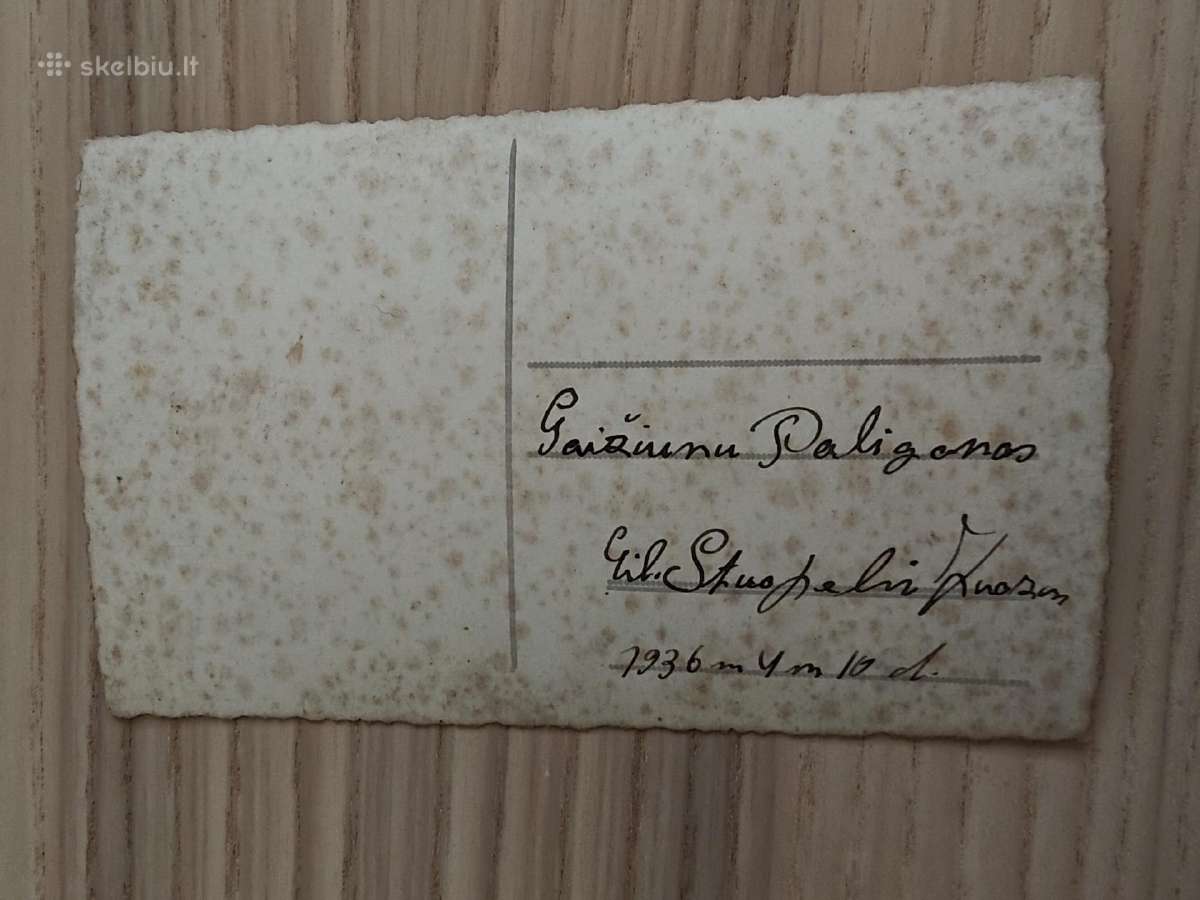 skelbiu.lt
Gaižiunu Poligonas
Eil. Stuopelis Juozas
1936 m 4 m 10 d.